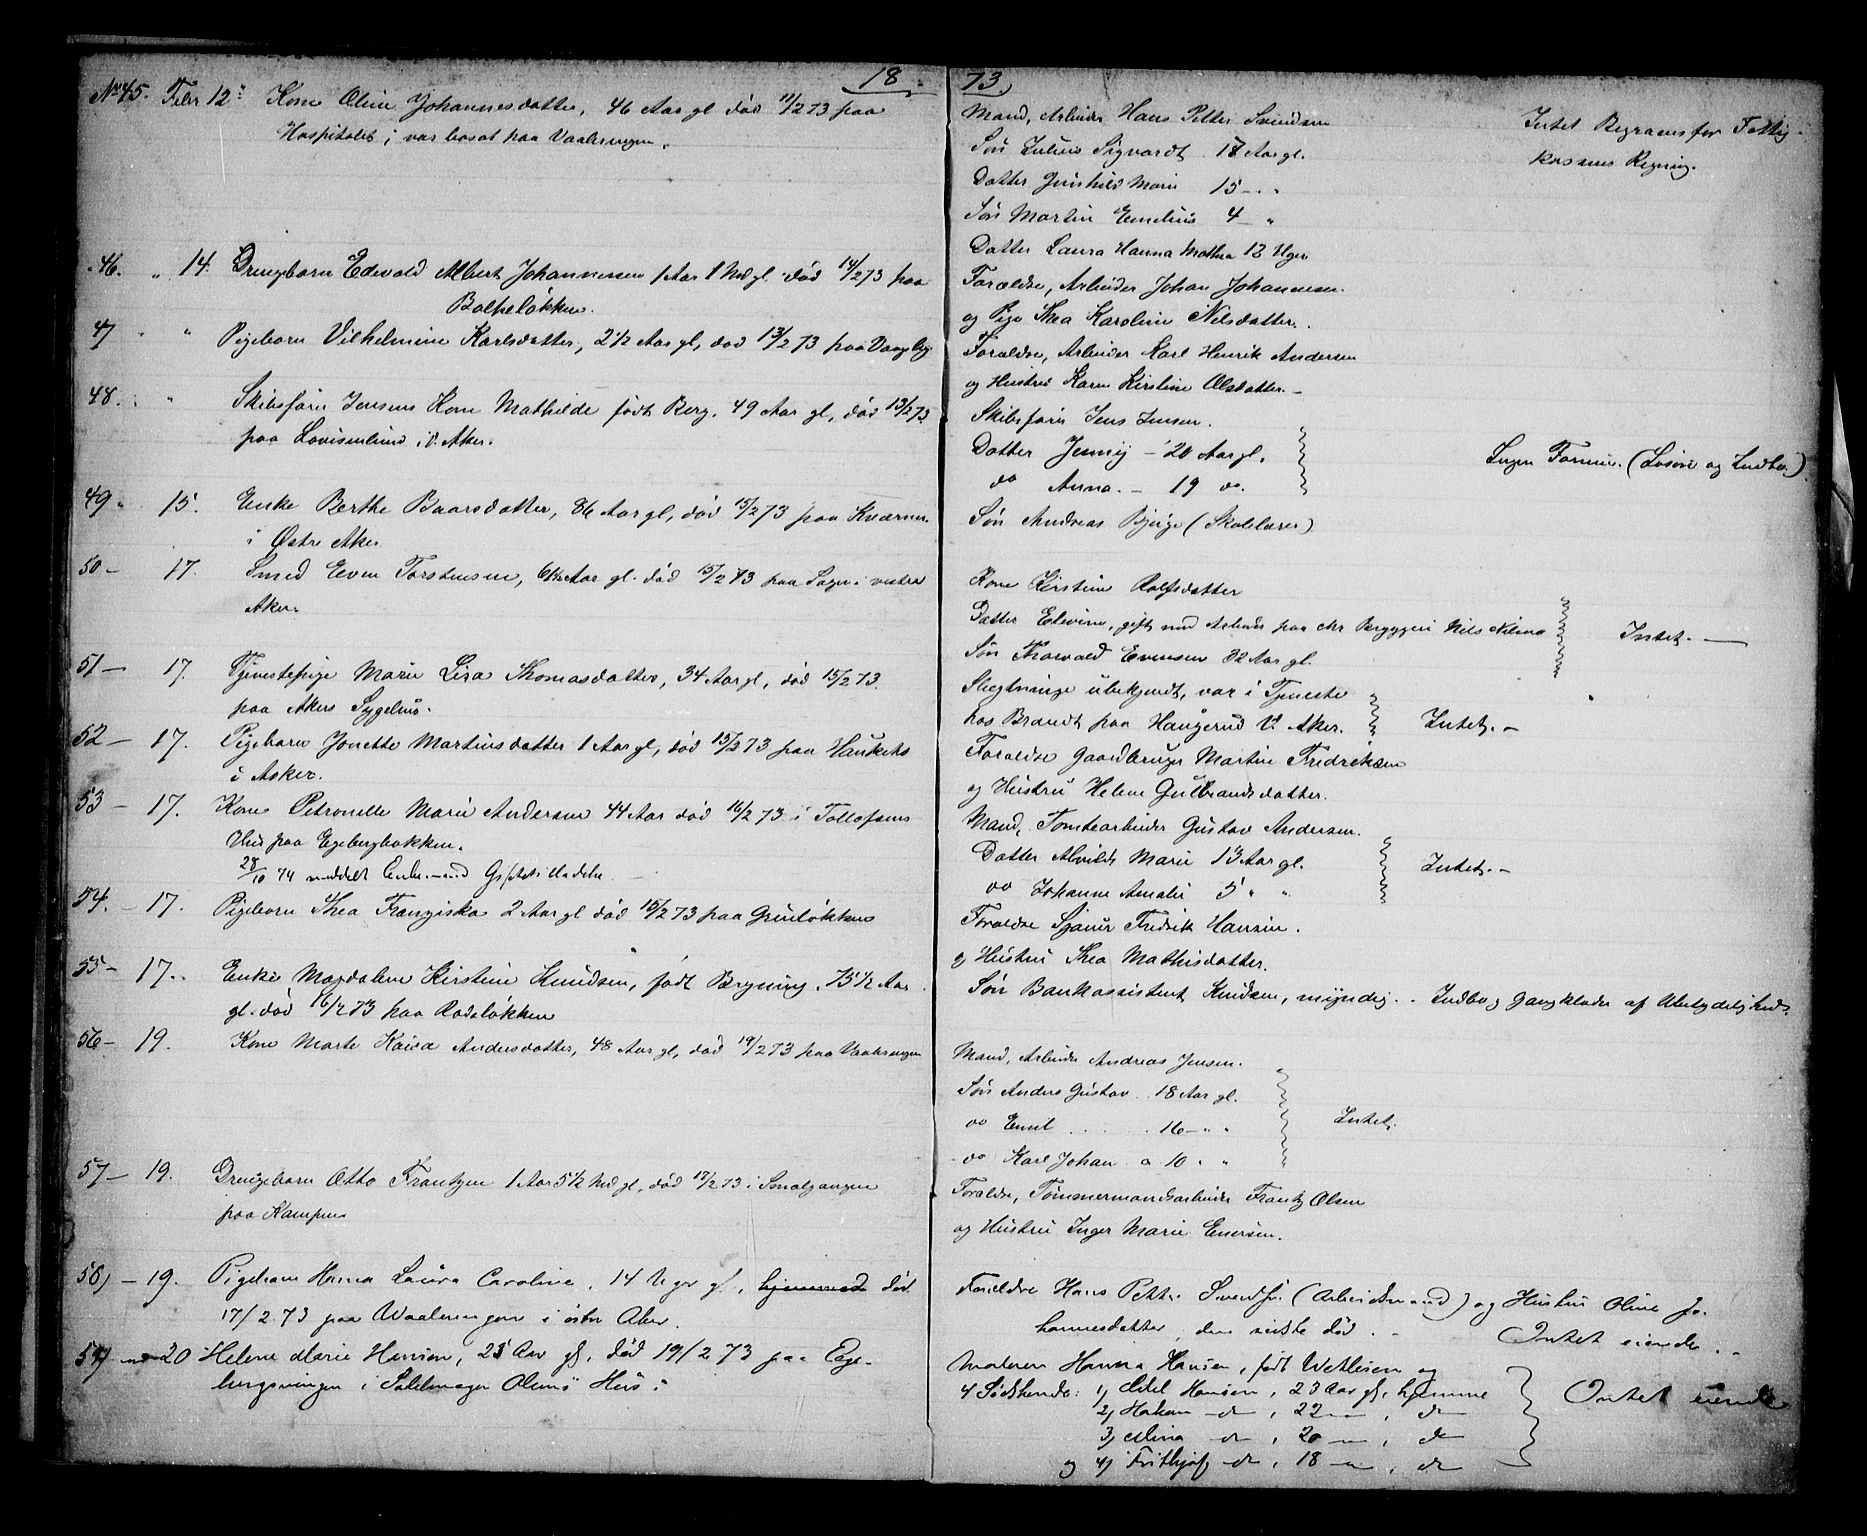 18
No 45. Febr 12" Kone Oline Johannesdatter, 46 Aar gl død 11/2 73 paa
Hospitalet; var bosat paa Vaalerengen.
46. " 14. Drengebarn Edevald Albert Johannessen 1 Aar 1 Md gl. død 14/2 73 paa
Bolteløkken.
47 " " Pigebarn Vilhelmine Karlsdatter, 2 1/2 Aar gl, død 13/2 73 paa
48. " " Skibsfører Jensens Kone Mathilde født Berg, 49 Aar gl, død 13/2 73
paa Lovisenlund i V. Aker.
49 " 15. Enke Berthe Baarsdatter, 86 Aar gl, død 15/2 73 paa Kværner
i Østre Aker.
50 — 17. Smed Even Torstensen, Aar gl. død 15/2 73 paa Sogn i vestre
Aker.
51 — 17. Tjenestepige Marie Lisa Thomasdatter, 34 Aar gl, død 15/2 73
paa Akers Sygehus.
52 — 17. Pigebarn Jonette Martinsdatter 1 Aar gl, død 15/2 73 paa
i Asker.
53 — 17. Kone Petronelle Marie Andersen 44 Aar død 16/2 73 i Tollefsens
Hus paa Egebergbakken.
28/10 74 meddelt Enkemand Giftetilladelse
54. — 17. Pigebarn Thea Franziska 2 Aar gl død 15/2 73 paa Grünløkken
55 — 17. Enke Magdalene Kirstine Knudsen, født Bryning, 75 1/2 Aar
gl. død 16/2 73 paa Rodeløkken
56 — 19. Kone Marte Kaisa Andersdatter, 48 Aar gl, død 19/2 73 paa Vaalerengen
57 — 19. Drengebarn Otto Frantzen 1 Aar 5 1/2 Md gl, død 17/2 73 i Smalgangen
paa Kampen
58) — 19. Pigebarn Hanna Laura Caroline, 14 Uger gl, død
17/2 73 paa Waalerengen i østre Aker.
59) — 20 Helene Marie Hansen, 25 Aar gl, død 19/2 73 paa Ege-
bergsveien i Sadelmager Olsens Hus.
73.
Mand, Arbeider Hans Petter Svendsen
Søn Julius Sigvardt 18 Aar gl.
Datter Gunhild Marie 15 — "
Søn Martin Emelius 4 — "
Datter Laura Hanna Mathea 12 Uger
Intet Begraves for Fattig-
kassens Regning.
Forældre, Arbeider Johan Johannesen
og Pige Thea Karoline Nilsdatter.
Forældre, Arbeider Karl Henrik Andersen
og Hustru Karen Kirstine Olsdatter. —
Skibsfører Jens Jensen.
Datter Jenny — 20 Aar gl.
do Anna. — 19 do.
Ingen Formue. (Løsøre og Indbo.)
Søn Andreas Bjerge (Skolelærer)
Kone Kirstine Rolfsdatter
Datter Elevine, gift med Arbeider paa Chr Bryggeri Nils Nilsen
Søn Thorvald Evensen 32 Aar gl.
Intet. —
Slegtninge ubekjendt, var i Tjeneste
hos Brandt paa Haugerud V. Aker.
Intet. —
Forældre Gaardbruger Martin Fredriksen
og Hustru Helene Gulbrandsdatter.
Mand, Tomtearbeider Gustav Andersen.
Datter Alvilde Marie 13 Aar gl.
do Johanne Amalie 5 " "
Intet. —
Forældre Sjauer Fredrik Hansen.
og Hustru Thea Mathisdatter.
Søn Bankassistent Knudsen, myndig. . Indbo og Gangklæder af Ubetydelighed.
Mand, Arbeider Andreas Jensen.
Søn Anders Gustav . 18 Aar gl.
do Emil . . . . 16 — " "
do Karl Johan " 10 " "
Intet.
Forældre, Tømmermandsarbeider Frantz Olsen
og Hustru Inger Marie Enersen.
Forældre Hans Petter Svendsen (Arbeidsmand) og Hustru Oline Jo-
hannesdatter, den sidste død. — Intet eiende.
Moderen Hanna Hansen, født Wetlesen og
4 Sødskende: 1) Edel Hansen, 23 Aar gl., hjemme
2) Hakon do, 22 —, do
3) Mina do, 20 —, do
og 4) Frithjof do, 18 —, do
Intet eiende